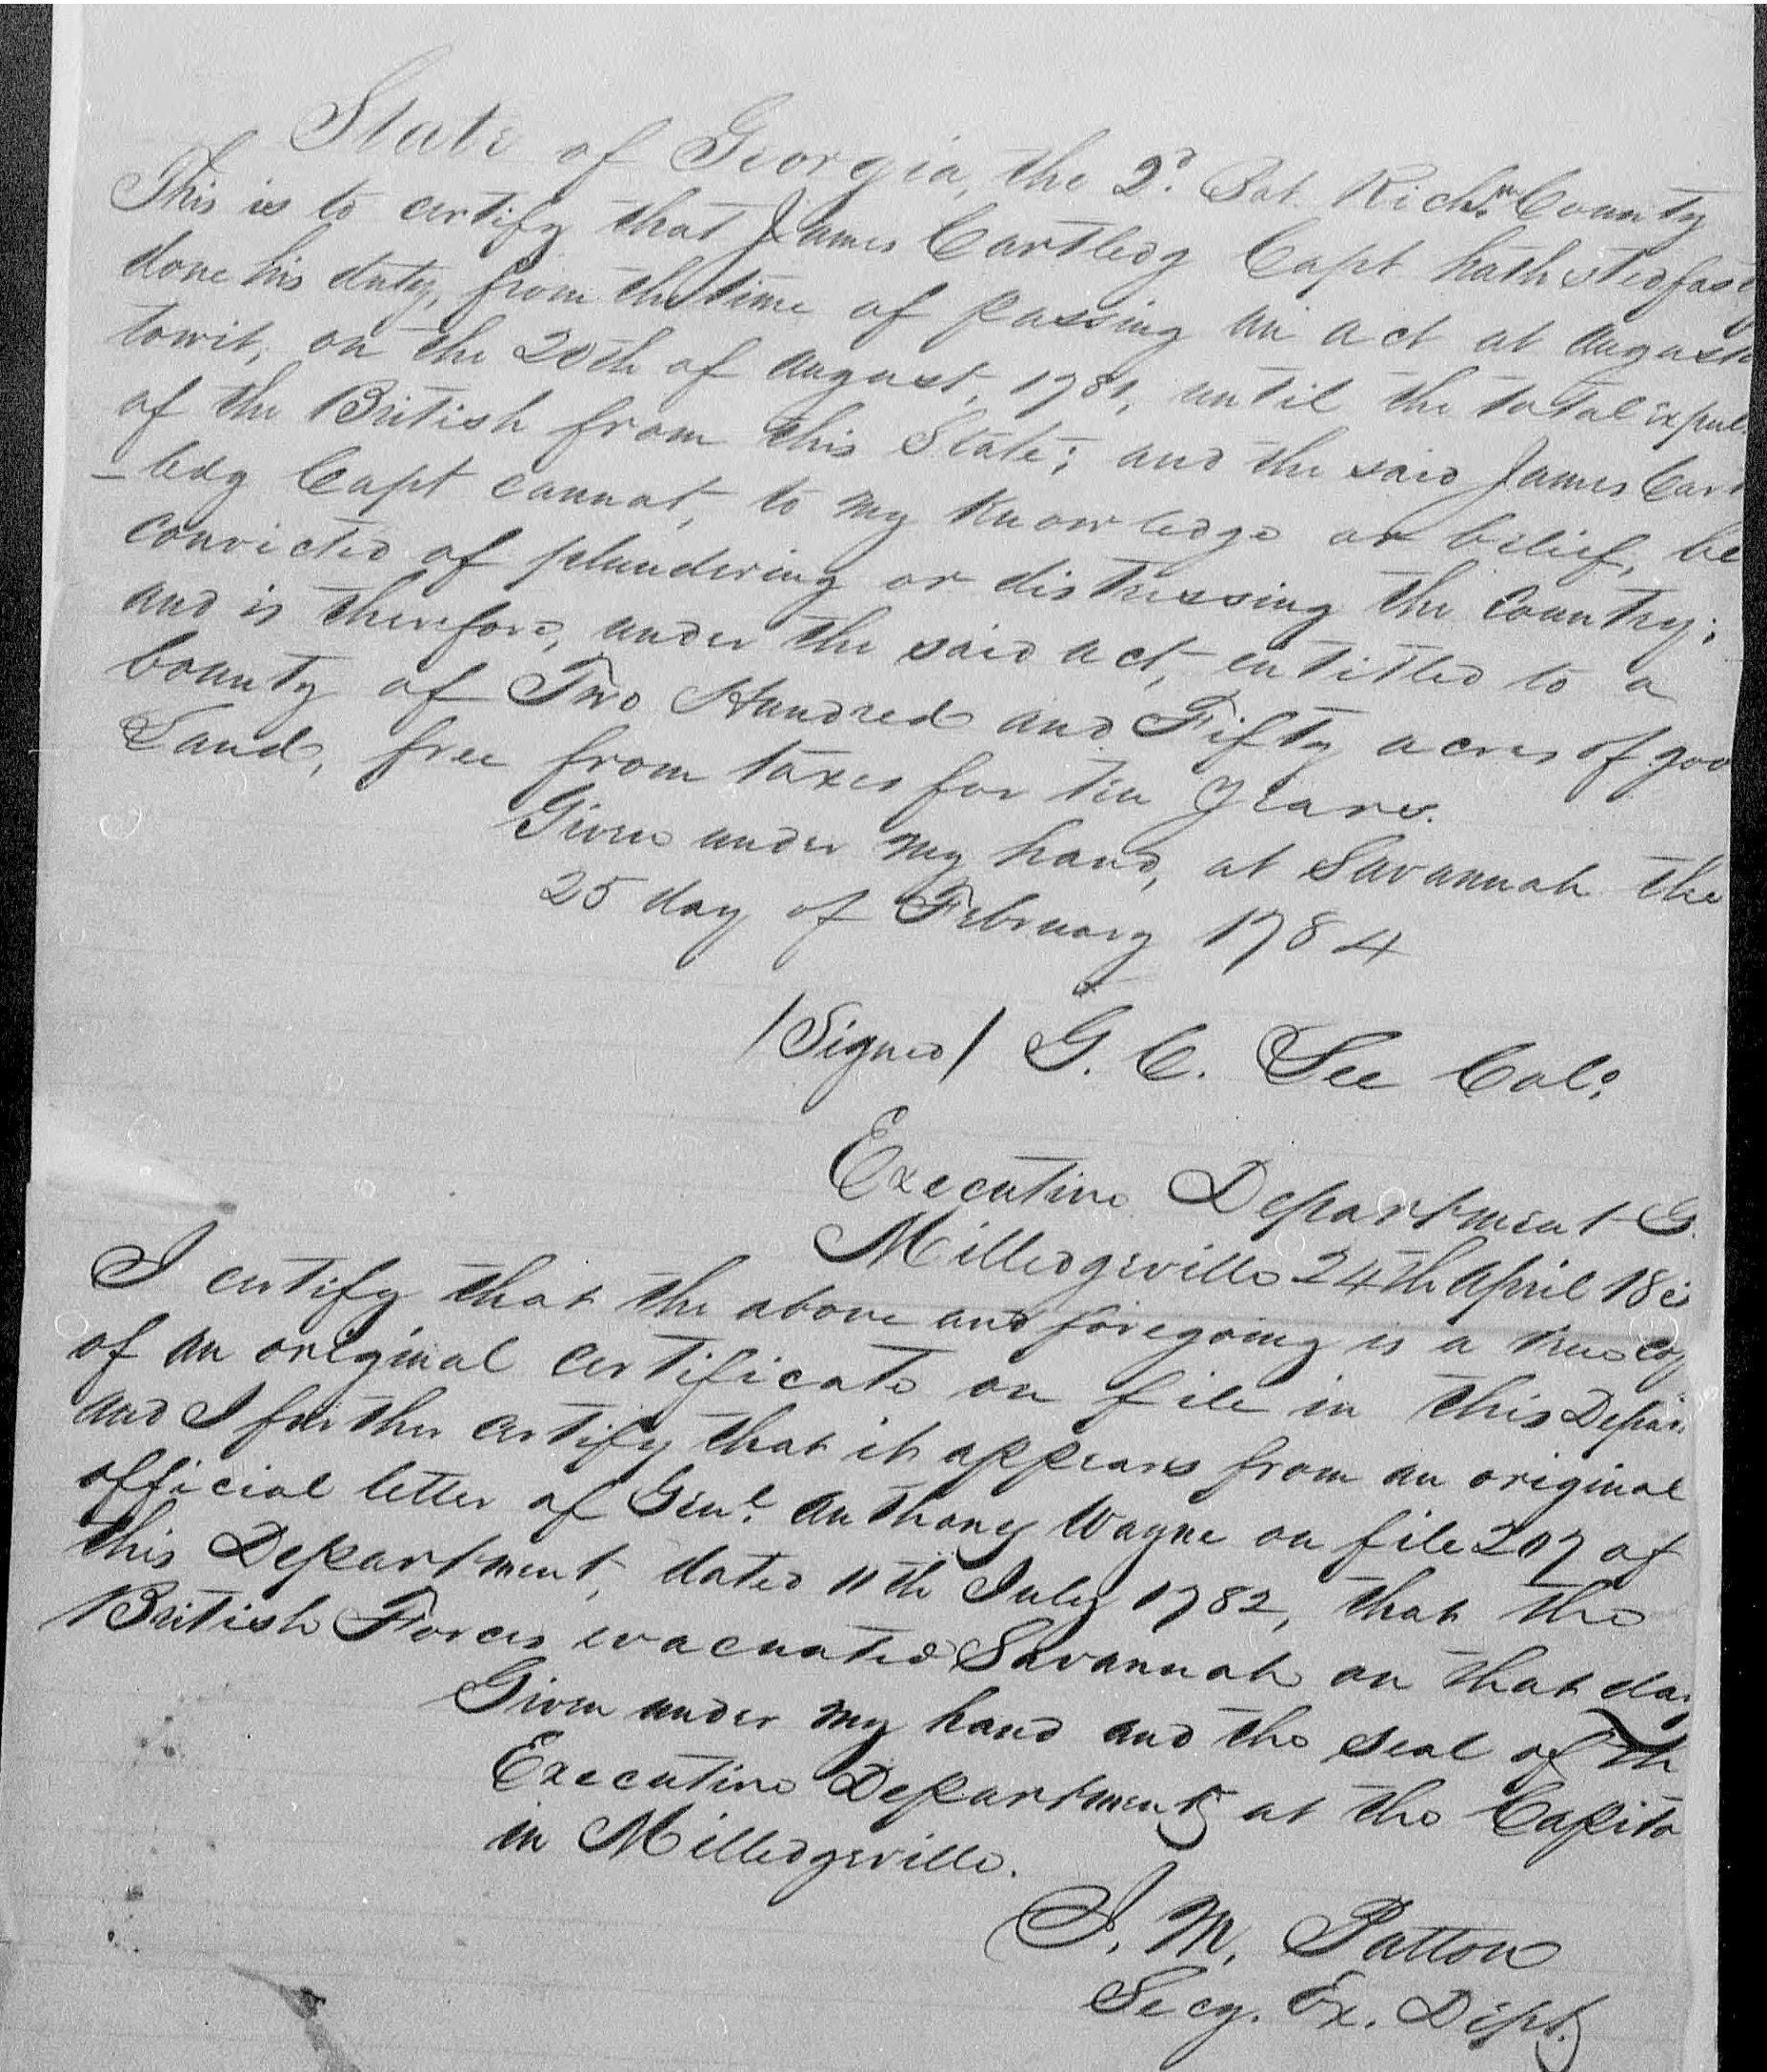 State of Georgia, the 2d. Bat. Richm. County
This is to certify that James Cartledg Capt hath stedfast
done his duty, from the time of passing an act at August
towit, on the 20th of august, 1781, until the total expul
of the British from this State; and the said James Cart
-ledg Capt cannot, to my knowledge or belief, be
convicted of plundering or distressing the Country;
and is therefore, under the said act, entitled to a
bounty of Two Hundred and Fifty acres of goo
Land, free from taxes for ten years.
Given under my hand, at Savannah the
25 day of February 1784
/Signed/ G. C. Lee Colo.
Executive Department G.
Milledgeville 24th April 18
I certify that the above and foregoing is a true cop
of an original certificate on file in this Depar
and I further certify that it appears from an original
official letter of Genl. Anthony Wayne on file 207 of
this Department, dated 11th July 1782, that the
British Forces evacuated Savannah on that day
Given under my hand and the seal of th
Executive Department at the Capito
in Milledgeville.
J. M. Patton
Secy. Ex. Dept.